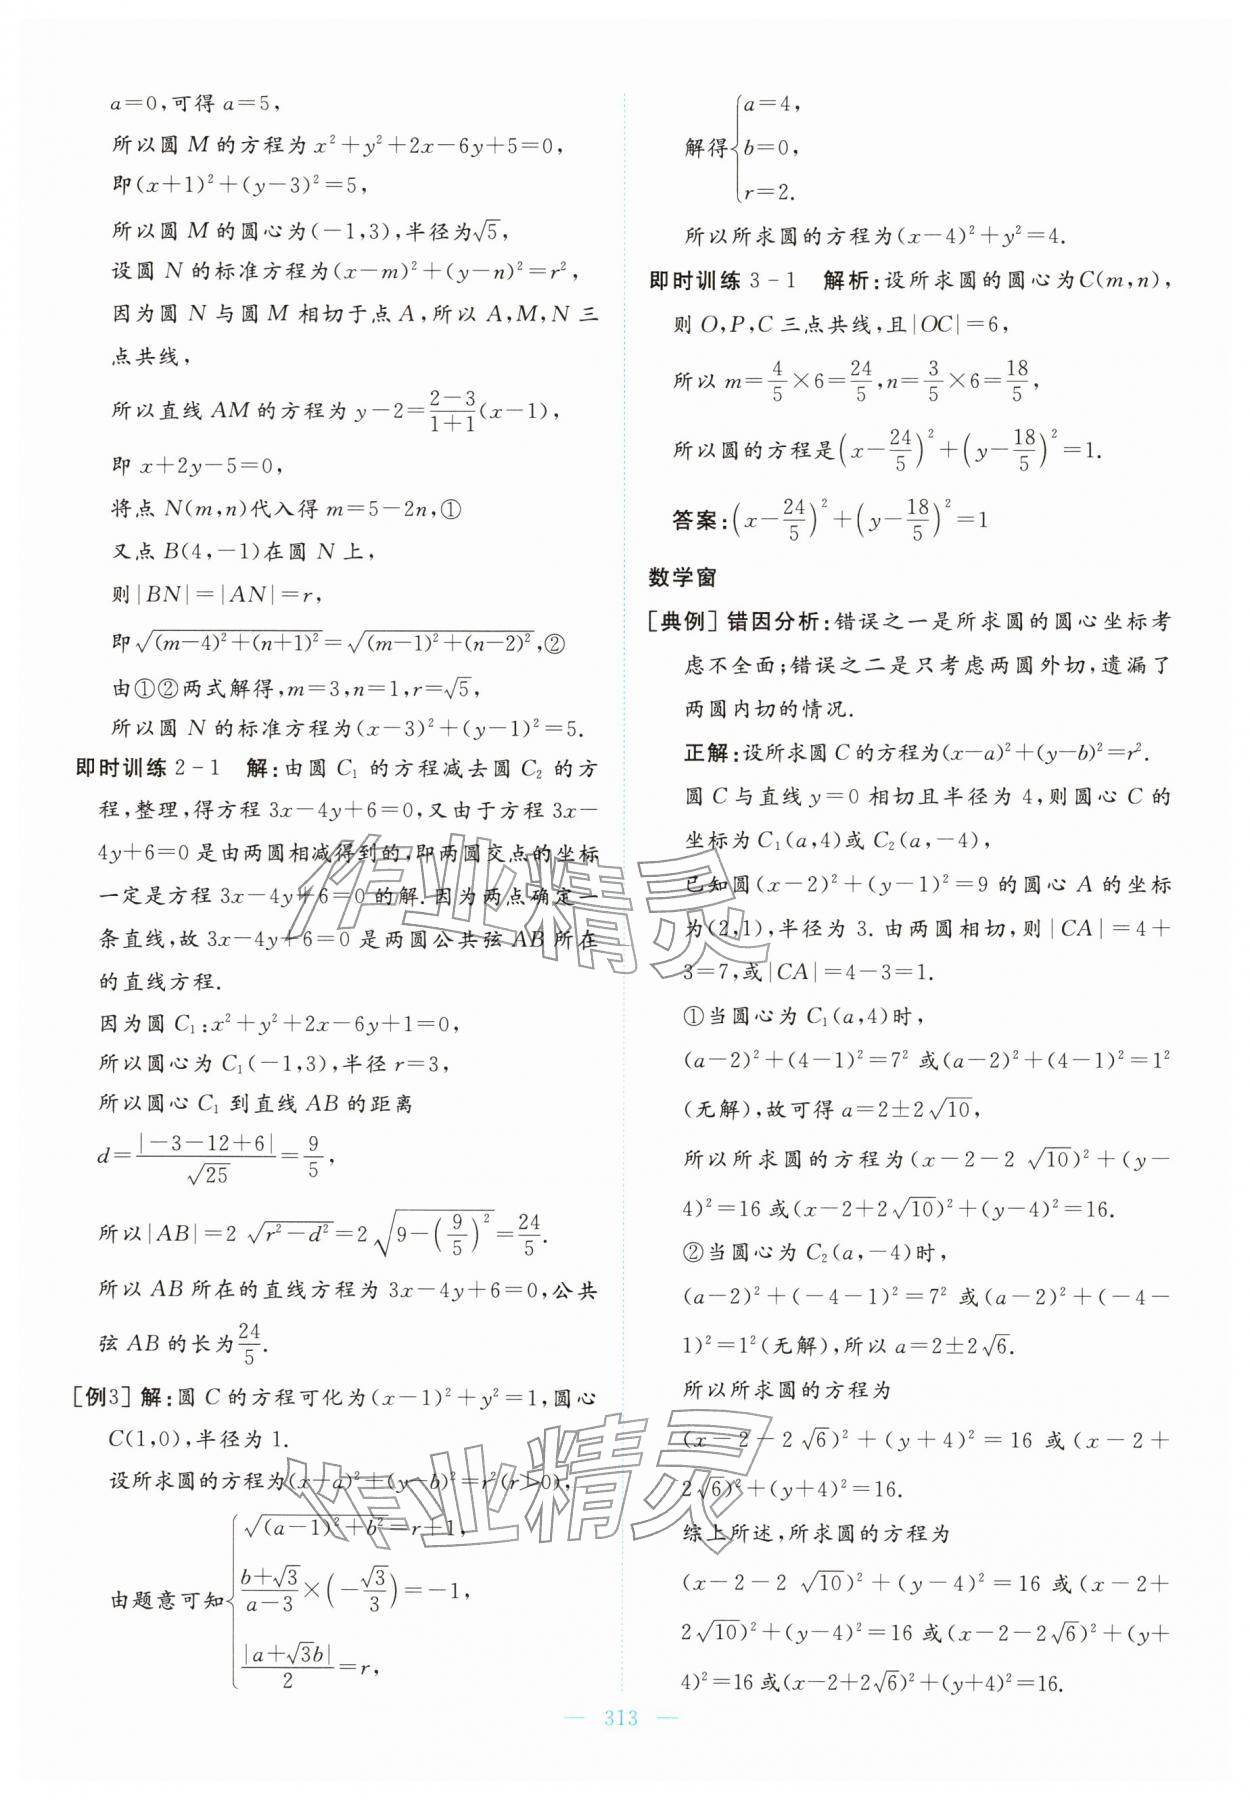 a=0,可得 a=5,
所以圆 M 的方程为 x²+y²+2x-6y+5=0,
即(x+1)²+(y-3)²=5,
所以圆 M 的圆心为(-1,3),半径为√5,
设圆 N 的标准方程为(x-m)²+(y-n)²=r²,
因为圆 N 与圆 M 相切于点 A,所以 A,M,N 三
点共线,
所以直线 AM 的方程为 y-2=\frac{2-3}{1+1}(x-1),
即 x+2y-5=0,
将点 N(m,n)代入得 m=5-2n,①
又点 B(4,-1)在圆 N 上,
则|BN|=|AN|=r,
即√((m-4)²+(n+1)²)=√((m-1)²+(n-2)²),②
由①②两式解得,m=3,n=1,r=√5,
所以圆 N 的标准方程为(x-3)²+(y-1)²=5.
即时训练 2-1 解:由圆 C₁ 的方程减去圆 C₂ 的方
程,整理,得方程 3x-4y+6=0,又由于方程 3x-
4y+6=0 是由两圆相减得到的,即两圆交点的坐标
一定是方程 3x-4y+6=0 的解.因为两点确定一
条直线,故 3x-4y+6=0 是两圆公共弦 AB 所在
的直线方程.
因为圆 C₁:x²+y²+2x-6y+1=0,
所以圆心为 C₁(-1,3),半径 r=3,
所以圆心 C₁ 到直线 AB 的距离
d=\frac{|-3-12+6|}{√25}=\frac{9}{5},
所以|AB|=2 √(r²-d²)=2√(9-(\frac{9}{5})²)=\frac{24}{5}.
所以 AB 所在的直线方程为 3x-4y+6=0,公共
弦 AB 的长为\frac{24}{5}.
[例3] 解:圆 C 的方程可化为(x-1)²+y²=1,圆心
C(1,0),半径为 1.
设所求圆的方程为(x-a)²+(y-b)²=r²(r>0),
由题意可知{√((a-1)²+b²)=r+1,
\frac{b+√3}{a-3}×(-\frac{√3}{3})=-1,
\frac{|a+√3b|}{2}=r,
解得{a=4,
b=0,
r=2.
所以所求圆的方程为(x-4)²+y²=4.
即时训练 3-1 解析:设所求圆的圆心为C(m,n),
则 O,P,C 三点共线,且|OC|=6,
所以 m=\frac{4}{5}×6=\frac{24}{5},n=\frac{3}{5}×6=\frac{18}{5},
所以圆的方程是(x-\frac{24}{5})²+(y-\frac{18}{5})²=1.
答案:(x-\frac{24}{5})²+(y-\frac{18}{5})²=1
数学窗
[典例] 错因分析:错误之一是所求圆的圆心坐标考
虑不全面;错误之二是只考虑两圆外切,遗漏了
两圆内切的情况.
正解:设所求圆 C 的方程为(x-a)²+(y-b)²=r².
圆 C 与直线 y=0 相切且半径为 4,则圆心 C 的
坐标为 C₁(a,4)或 C₂(a,-4),
已知圆(x-2)²+(y-1)²=9 的圆心 A 的坐标
为(2,1),半径为 3.由两圆相切,则|CA|=4+
3=7,或|CA|=4-3=1.
①当圆心为 C₁(a,4)时,
(a-2)²+(4-1)²=7² 或(a-2)²+(4-1)²=1²
(无解),故可得 a=2±2√10,
所以所求圆的方程为(x-2-2 √10)²+(y-
4)²=16 或(x-2+2√10)²+(y-4)²=16.
②当圆心为 C₂(a,-4)时,
(a-2)²+(-4-1)²=7² 或(a-2)²+(-4-
1)²=1²(无解),所以 a=2±2√6.
所以所求圆的方程为
(x-2-2 √6)²+(y+4)²=16 或(x-2+
2√6)²+(y+4)²=16.
综上所述,所求圆的方程为
(x-2-2 √10)²+(y-4)²=16 或(x-2+
2√10)²+(y-4)²=16 或(x-2-2√6)²+(y+
4)²=16 或(x-2+2√6)²+(y+4)²=16.
作业精灵
作业精灵
— 313 —